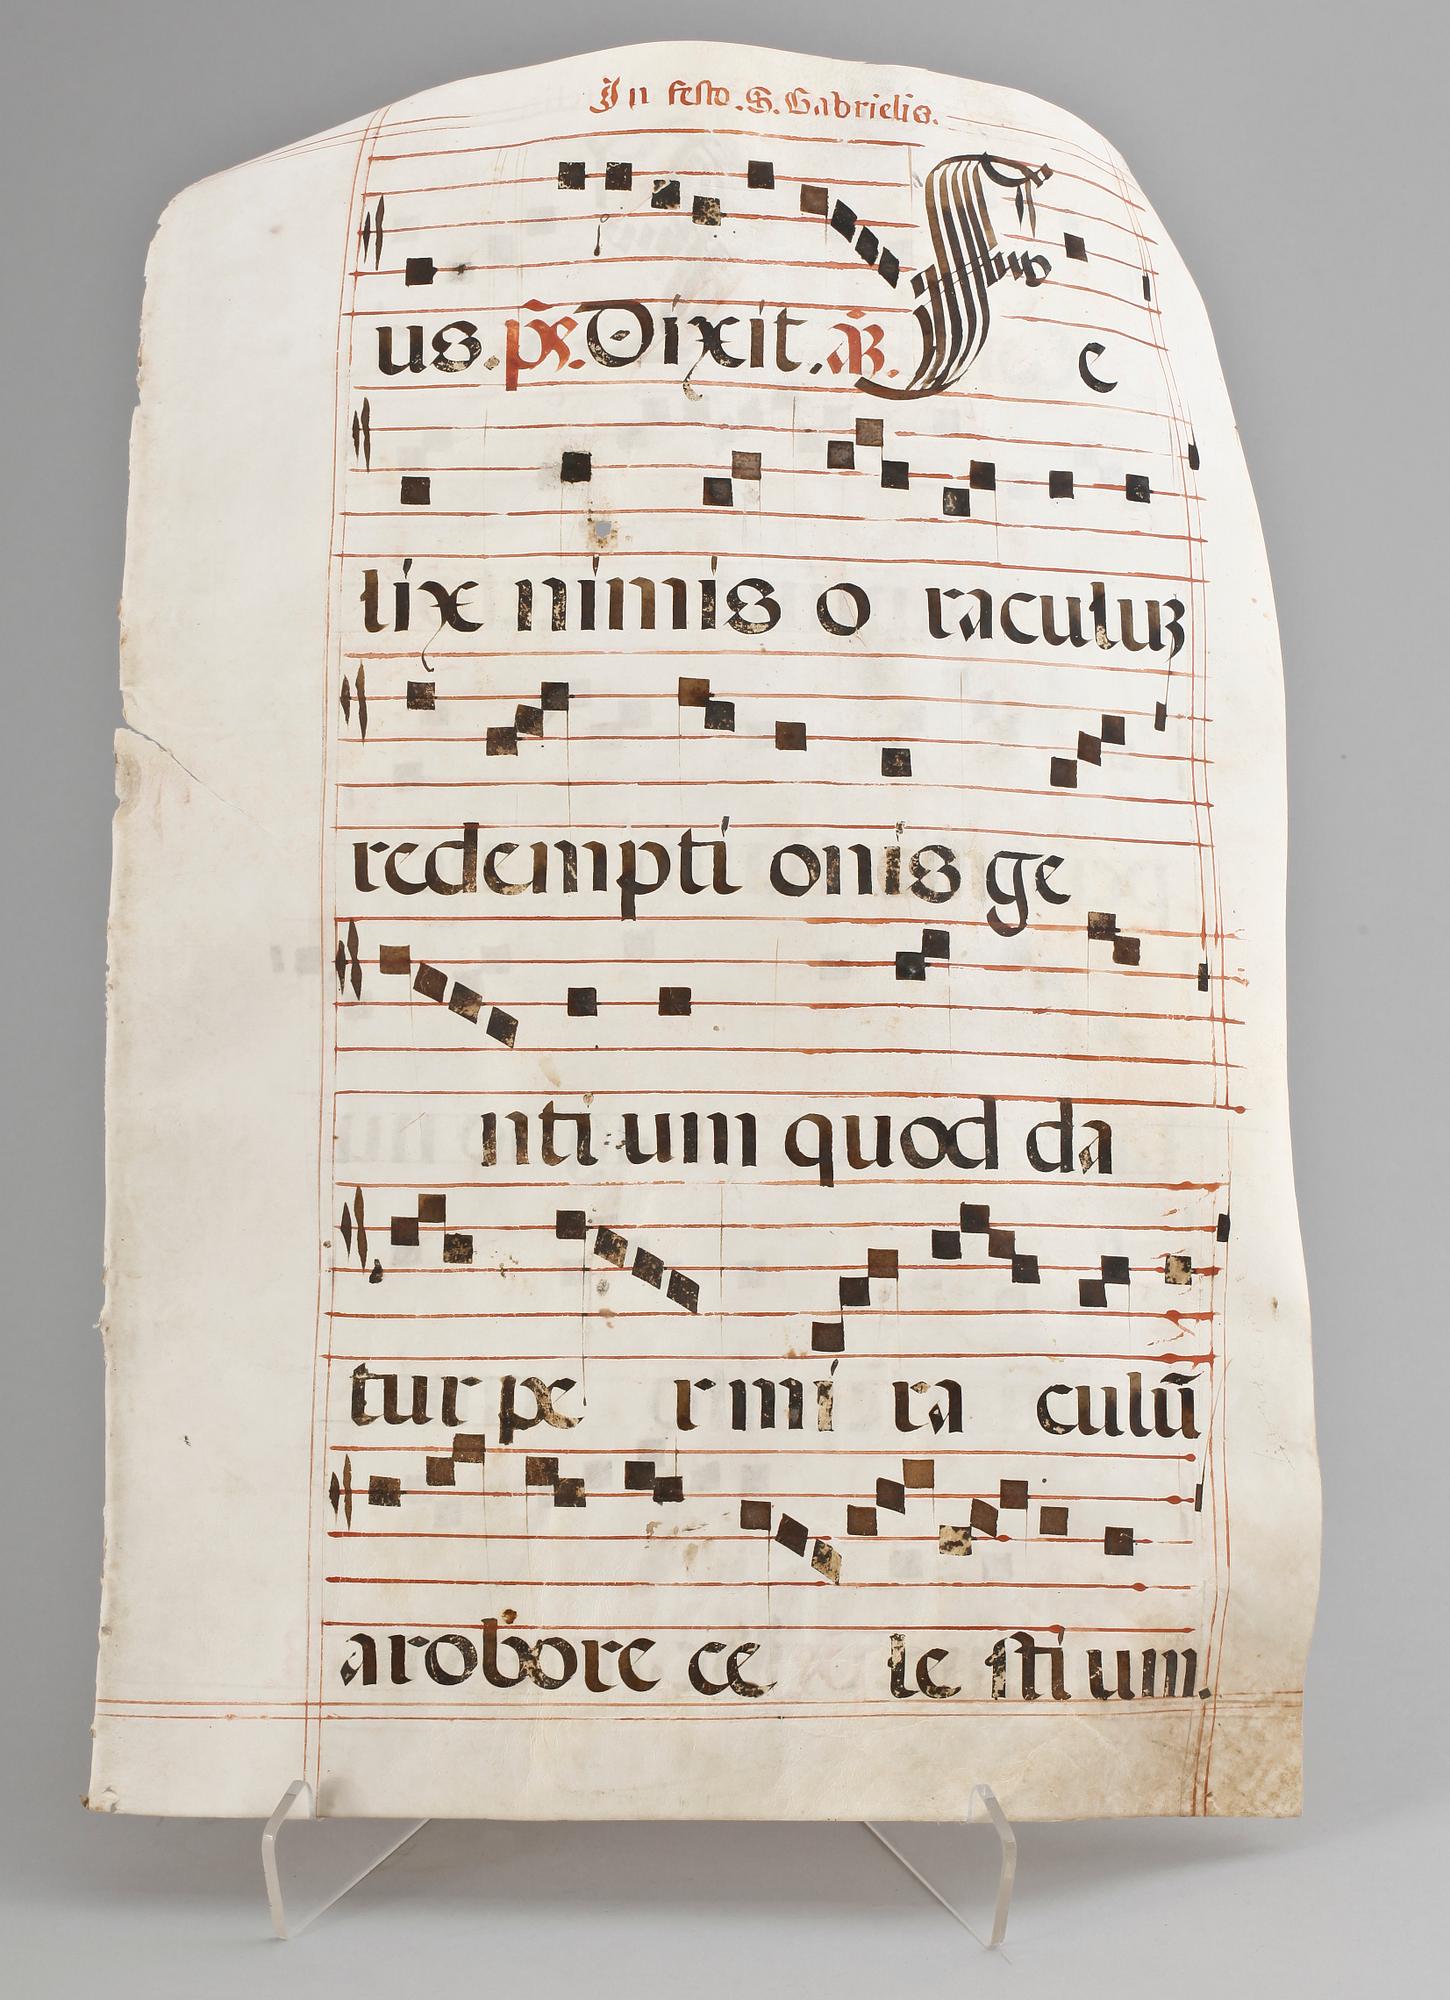 In festo. S. Gabrielis.
us. ps. Dixit. añ. F e
lix nimis o raculuʒ
redempti onis ge
nti um quod da
tur pe r mi ra culū
a robore ce le sti um.